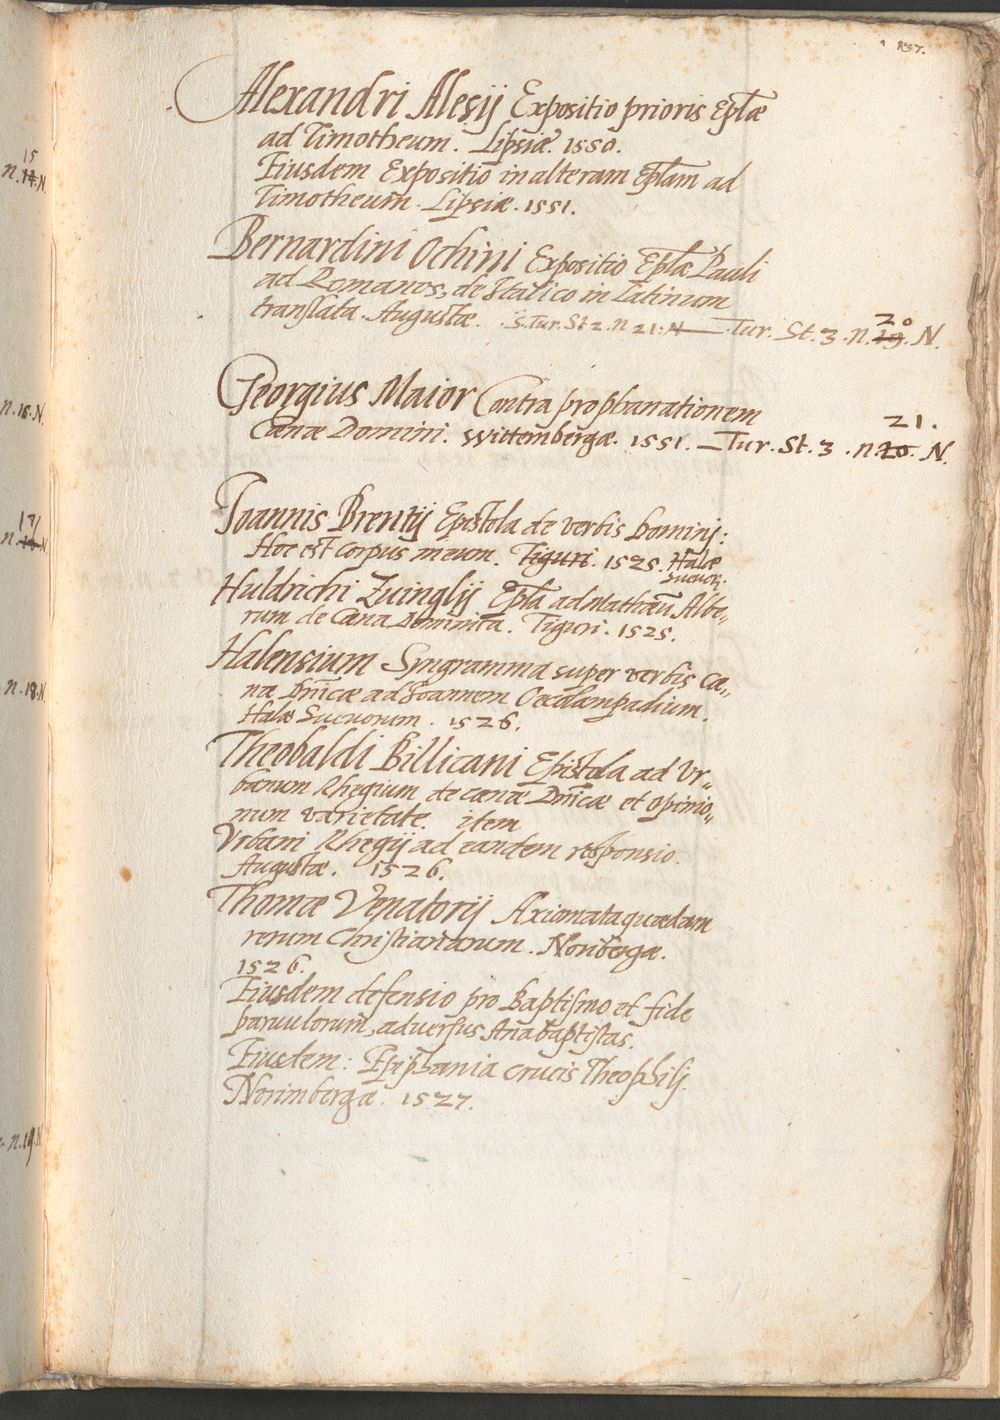 137.
Alexandri Alesij Expositio prioris Eplæ
ad Timotheum. Lipsiæ. 1550.
Eiusdem Expositio in alteram Eplam ad
Timotheum. Lipsiæ. 1551.
Bernardini Ochini Expositio Eplæ Pauli
ad Romanos, de Italico in Latinum
translata. Augustæ. S. Tur. St 2. n 21. N Tur. St. 3. n. 19. 20 N.
Georgius Maior Contra prophanationem
Cænæ Domini. Wittembergæ. 1551. Tur. St. 3. n. 20. 21. N.
Ioannis Brentij Epistola de verbis Domini:
Hoc est Corpus meum. Tiguri. 1525. Halæ
Suevor.
Huldrichi Zuinglij Epla ad Mathæū Albe„
rum de Cæna Dominica. Tiguri. 1525.
Halensium Syngramma super verbis Cæ„
næ Dnicæ ad Joannem Oecolampadium.
Halæ Suevorum. 1526.
Theobaldi Billicani Epistola ad Vr„
banum Rhegium de cænæ Dnicæ et opinio„
num varietate. item
Vrbani Rhegij ad eandem responsio.
Augustæ. 1526.
Thomæ Venatorij Axiomata quædam
rerum Christianarum. Noribergæ.
1526.
Eiusdem defensio pro Baptismo et fide
parvulorum, adversus Anabaptistas.
Eiusdem: Epiphania crucis Theophili
Norimbergæ. 1527.
15
n. 14. N
n. 16. N.
17
n. N
n. 18. N
n. 19. N